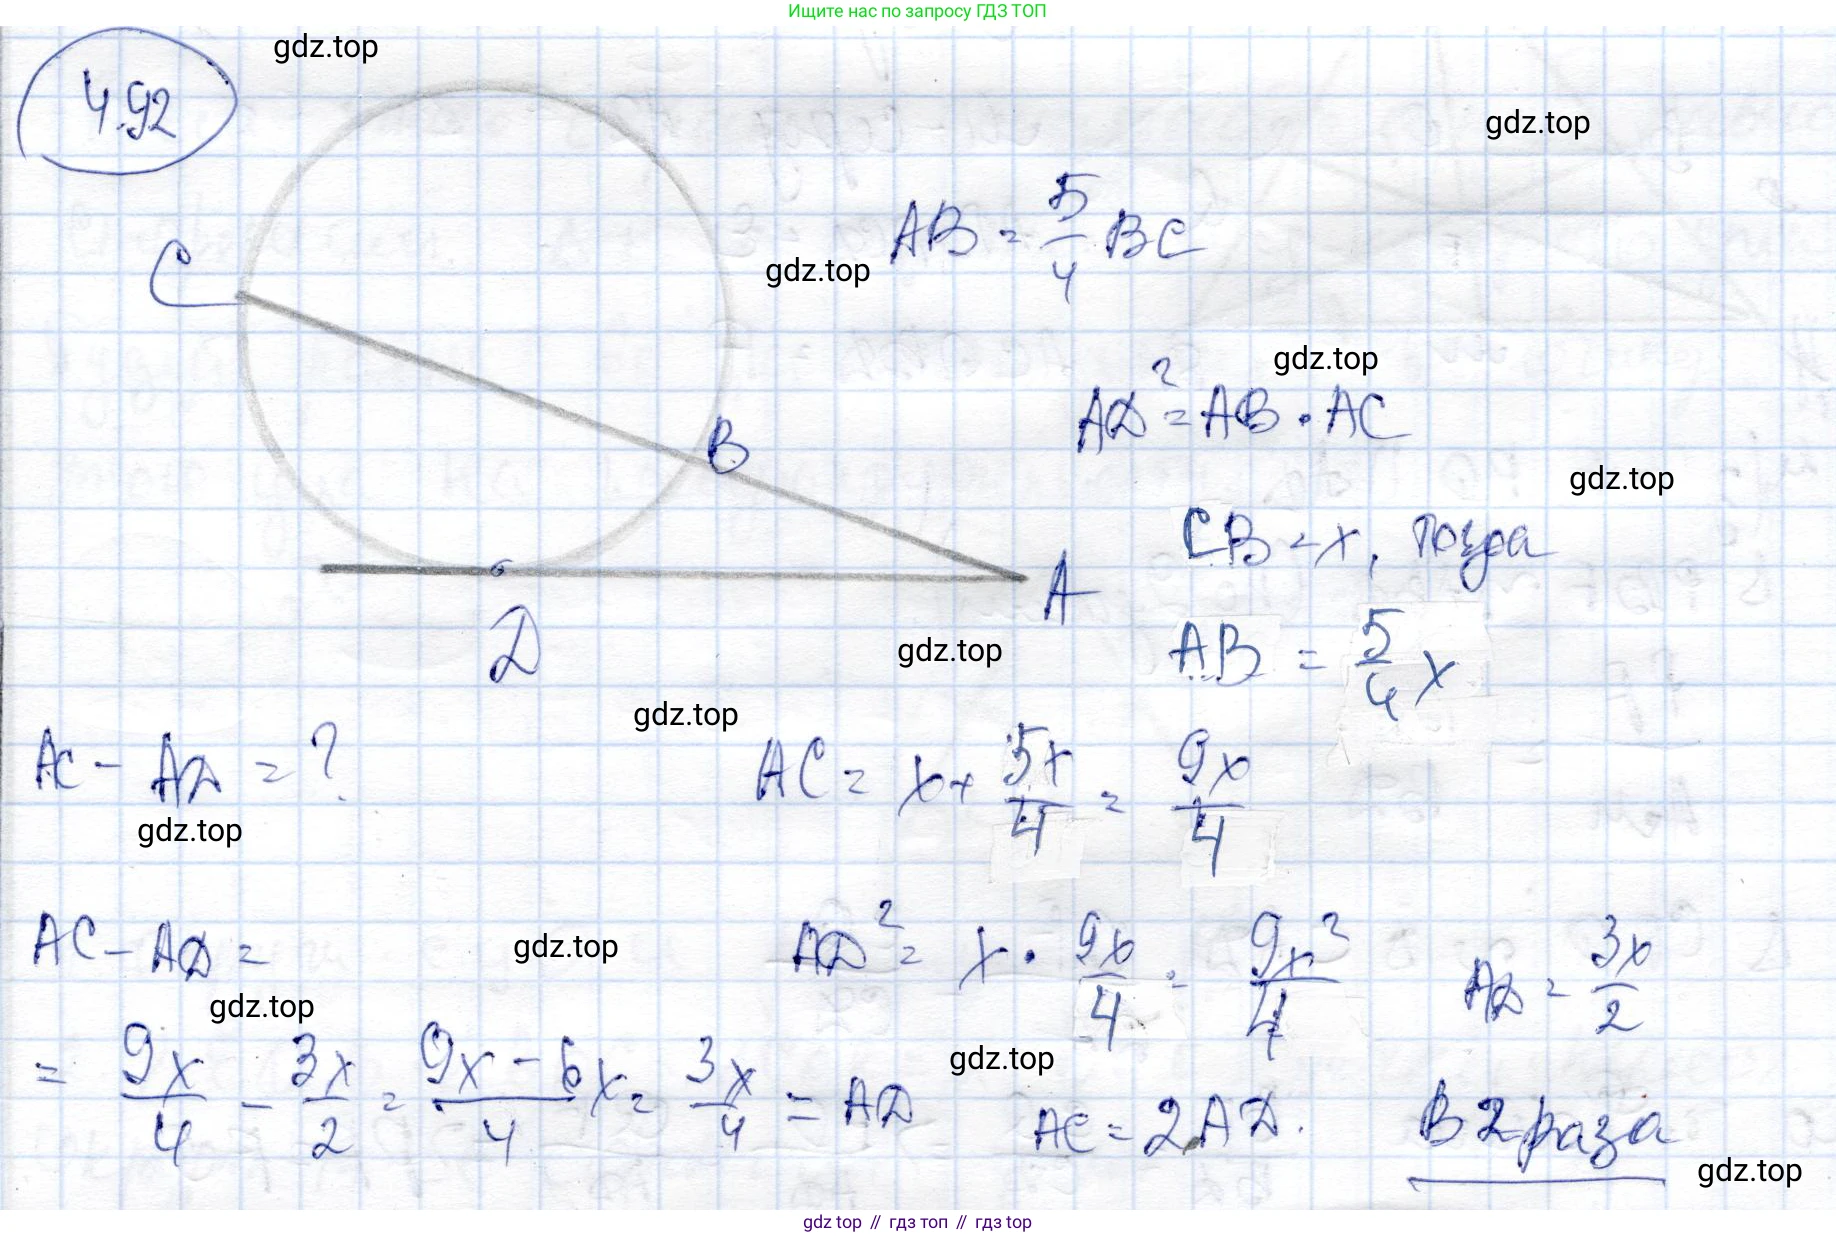 Ищите нас по запросу ГДЗ ТОП
4.92
gdz.top
gdz.top
AB = 5/4 BC
C
gdz.top
gdz.top
AD² = AB · AC
B
gdz.top
CB = x, тогда
A
D
gdz.top
AB = 5/4 x
gdz.top
AC - AD = ?
AC = x + 5x/4 = 9x/4
gdz.top
AC - AD =
gdz.top
AD² = x · 9x/4 = 9x²/4
AD = 3x/2
gdz.top
= 9x/4 - 3x/2 = 9x - 6x/4 = 3x/4 = AD
gdz.top
AC = 2AD.
В 2 раза
gdz.top
gdz top // гдз топ // гдз top